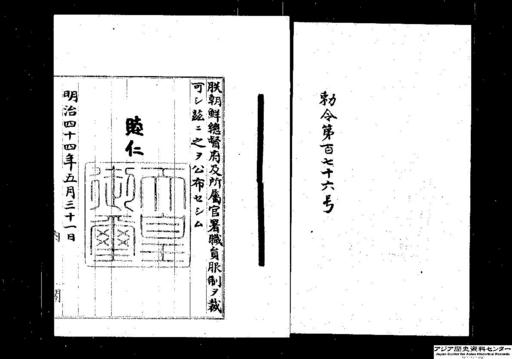 勅令第百七十六号
朕朝鮮總督府及所屬官署職員服制ヲ裁
可シ茲ニ之ヲ公布セシム
睦仁
天皇
御璽
明治四十四年五月三十一日
内閣
アジア歴史資料センター
Japan Center for Asian Historical Records